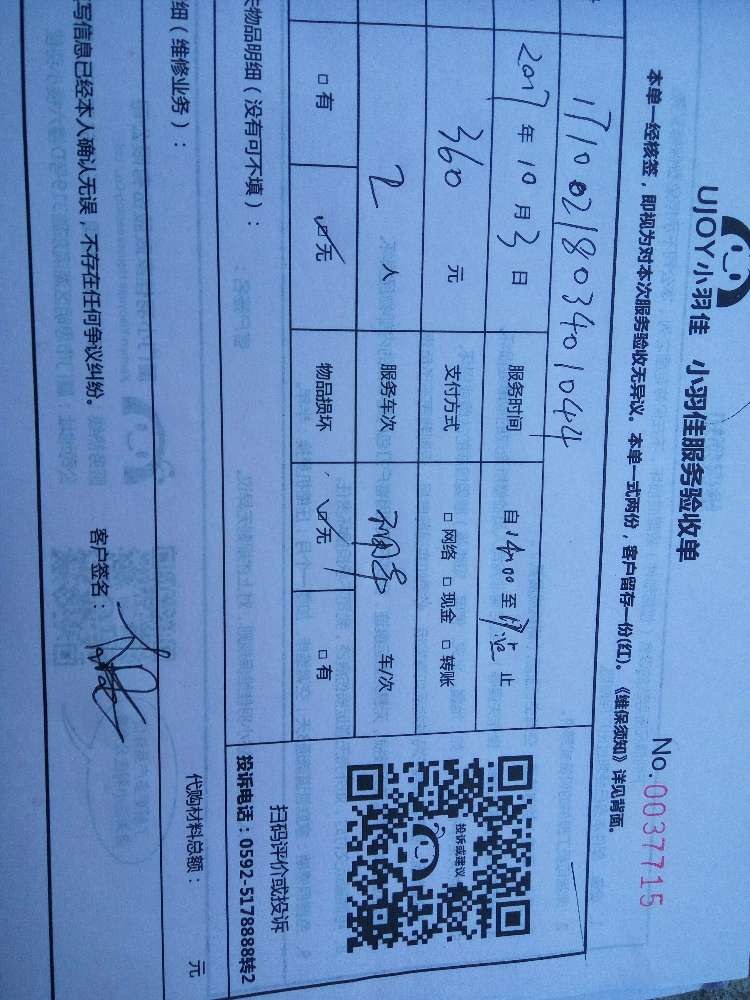 UJOY小羽佳 小羽佳服务验收单
No.0037715
本单一经核签，即视为对本次服务验收无异议。本单一式两份，客户留存一份(红)。《维保须知》详见背面。
1710021803401044
2017年10月3日 服务时间 自14:00至 止
360 元 支付方式 □网络 □现金 □转账
2 人 服务车次 车/次
□有 ☑无 物品损坏 ☑无 □有
物品明细（没有可不填）：
细（维修业务）：
代购材料总额： 元
写信息已经本人确认无误，不存在任何争议纠纷。
客户签名：
投诉或建议
扫码评价或投诉
投诉电话：0592-5178888转2